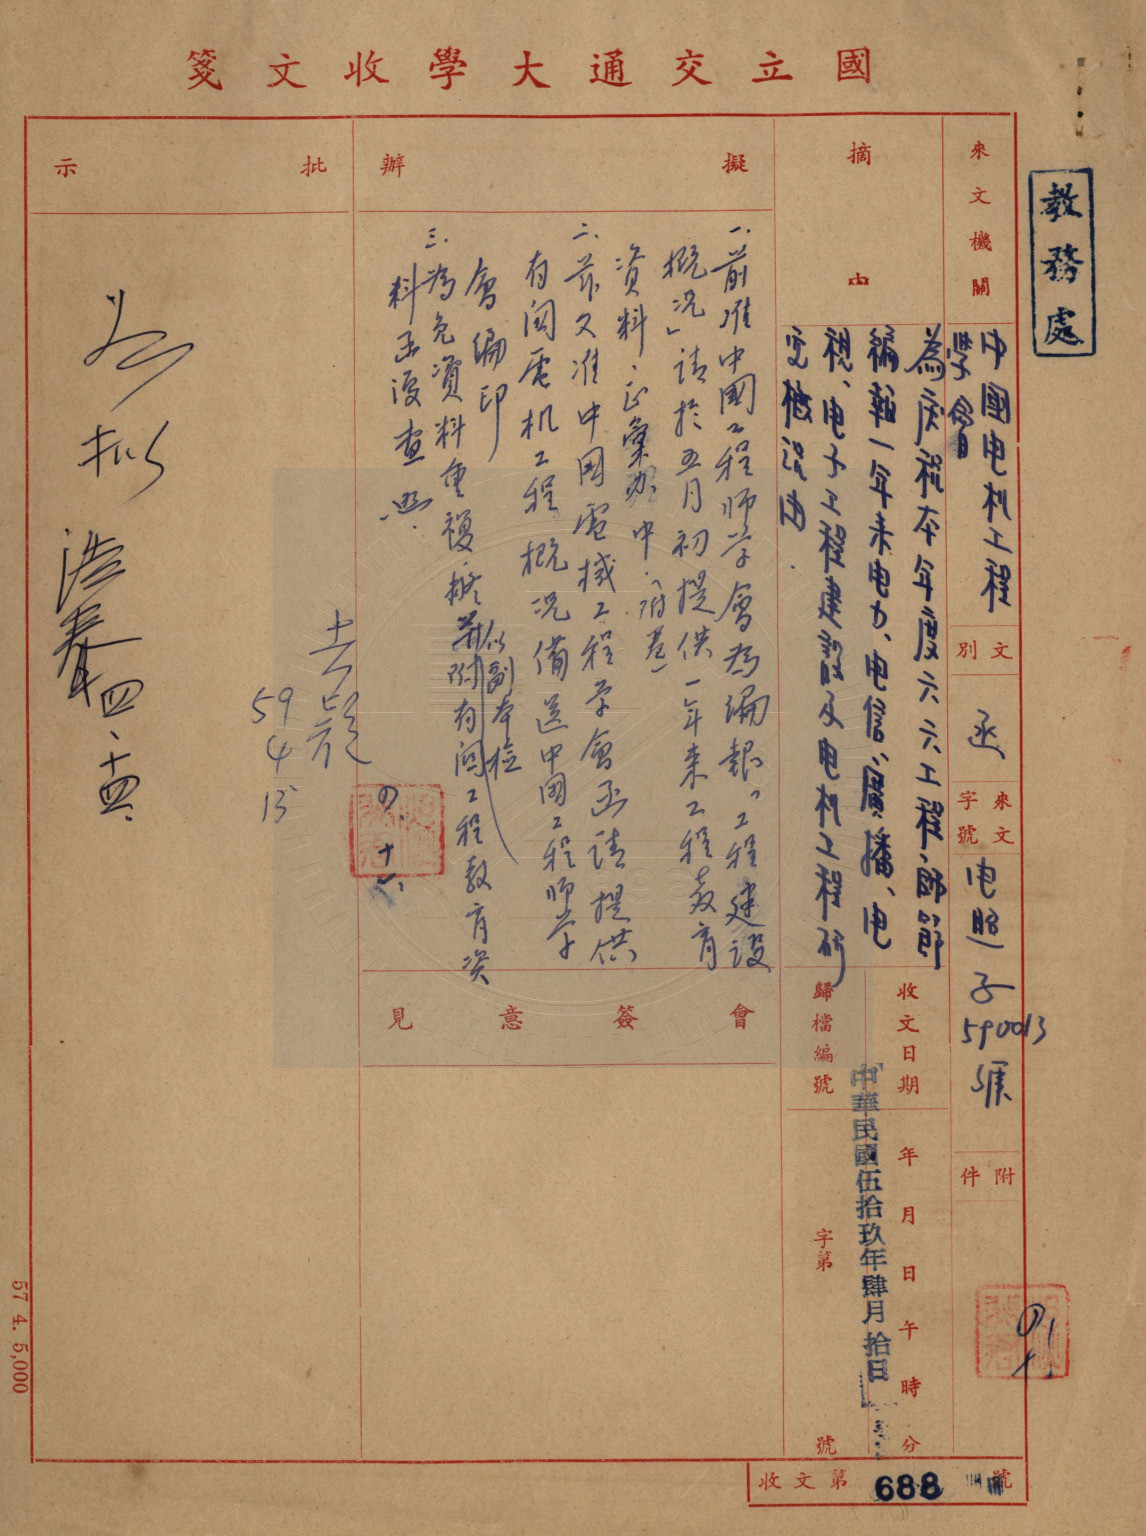 國立交通大學收文箋
教務處
來文機關
中國电机工程
學會
文別
函
來文字號
电照子590013號
附件
摘由
為庆祝本年度六六工程師節
編報一年来电力、电信、廣播、电
視、电子工程建設及电机工程研
究概況由.
收文日期
年月日午時分
中華民國伍拾玖年肆月拾日
歸檔編號
字第號
收文第688號
擬辦
一.前准中國工程师学會為編報「工程建設
概況」請於五月初提供一年来工程教育
資料、正彙办中.(附卷)
二、茲又准中國電機工程学會函請提供
有関電机工程概況備送中國工程师学
會編印
三.為免資料重複擬
以副本檢
附有関工程教育資
料函復查照.
59
4
13
四.十
會簽意見
批示
如擬
浩春四.十四.
57 4. 5,000